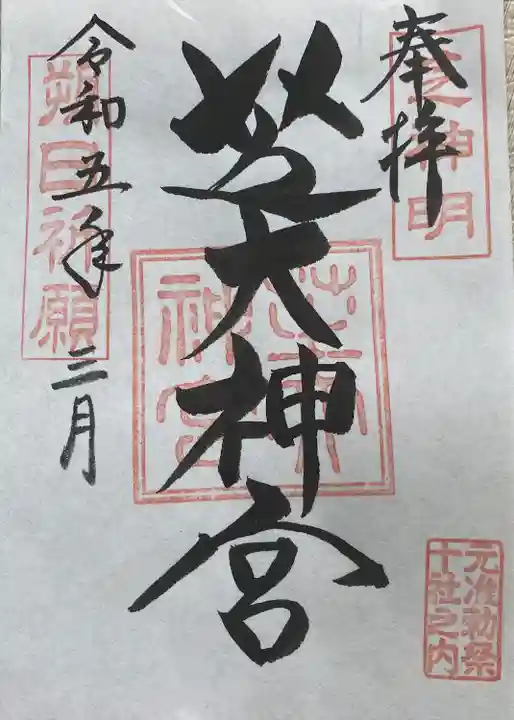 奉拝
芝神明
芝大神宮
芝大神宮
令和五年三月
朔日祈願
元准勅祭
十社之内